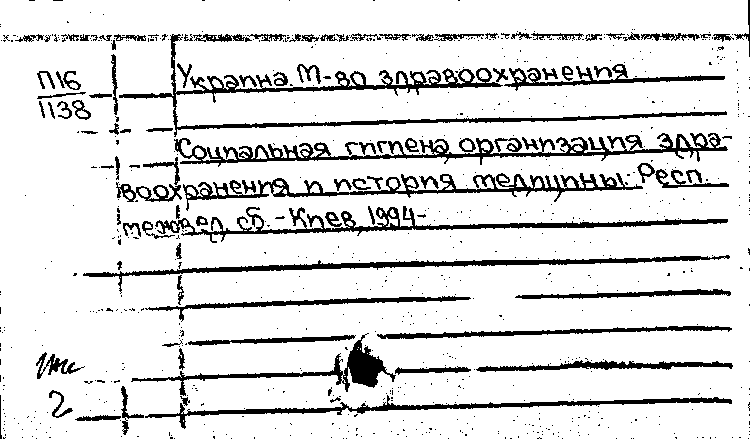 П16
П38
Украина. М-во здравоохранения
Социальная гигиена, организация здра-
воохранения и история медицины: Респ.
межвед. сб. - Киев, 1994-
2